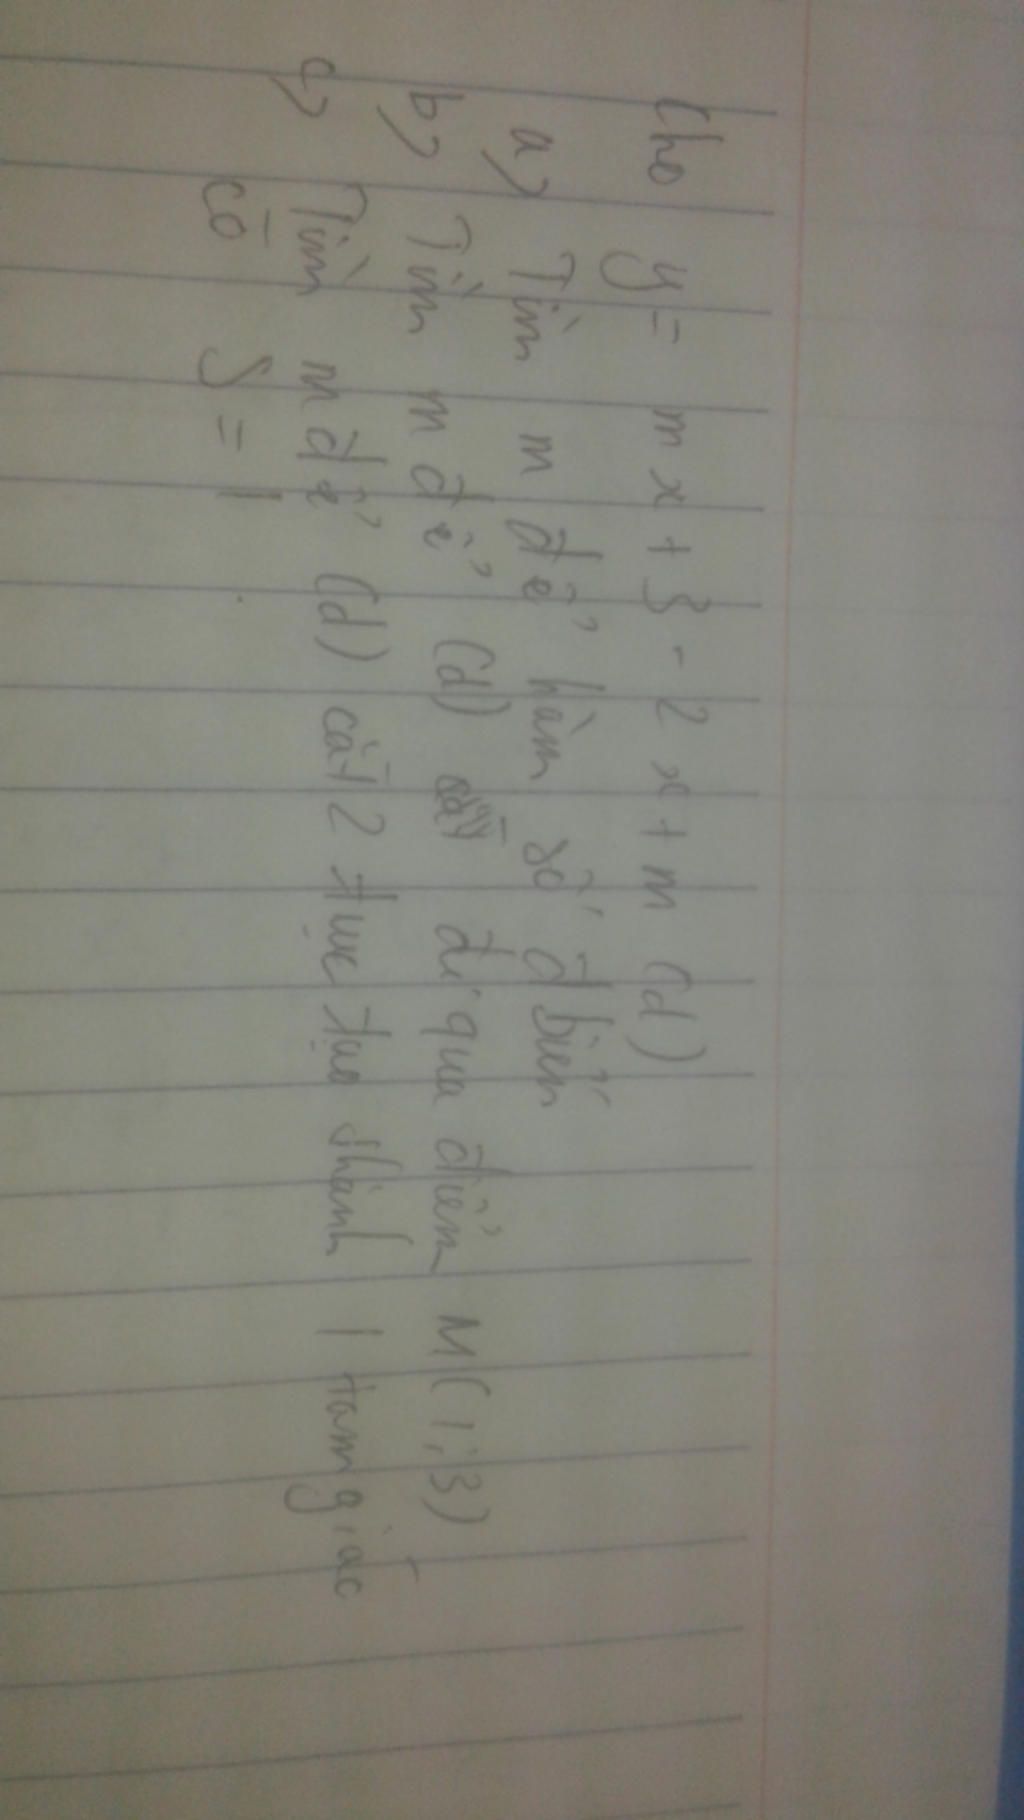 Cho y = mx + 3 - 2x + m (d)
a) Tìm m để hàm số đ biến
b) Tìm m để (d) đi qua điểm M(1;3)
c) Tìm m để (d) cắt 2 trục tạo thành 1 tam giác
có S = 1